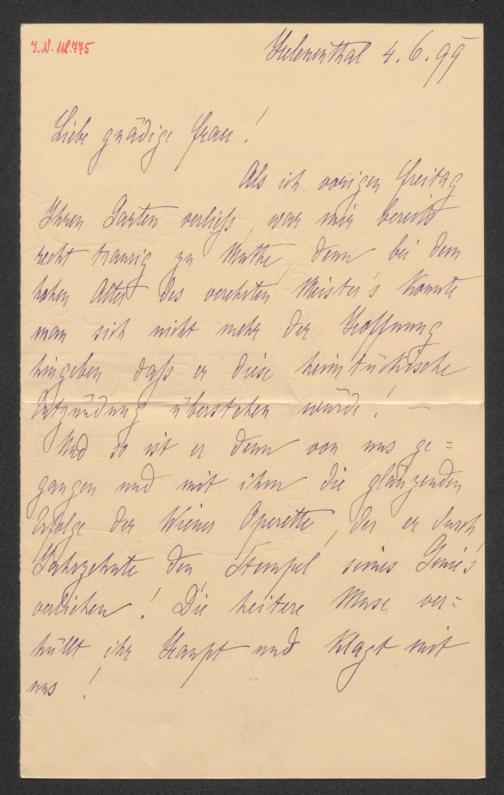 I.N. 118.775
Helenenthal 4.6.99
Liebe gnädige Frau!
Als ich vorigen Freitag
Ihren Garten verließ, war mir bereits
recht traurig zu Muthe, denn bei dem
hohen Alter des verehrten Meister's konnte
man sich nicht mehr der Hoffnung
hingeben, daß er diese heimtückische
Entzündung überstehen würde! –
Und so ist er denn von uns ge=
gangen und mit ihm die glänzenden
Erfolge der Wiener Operette, der er durch
Jahrzehnte den Stempel seines Genie's
verliehen! Die heitere Muse ver=
hüllt ihr Haupt und klagt mit
uns!